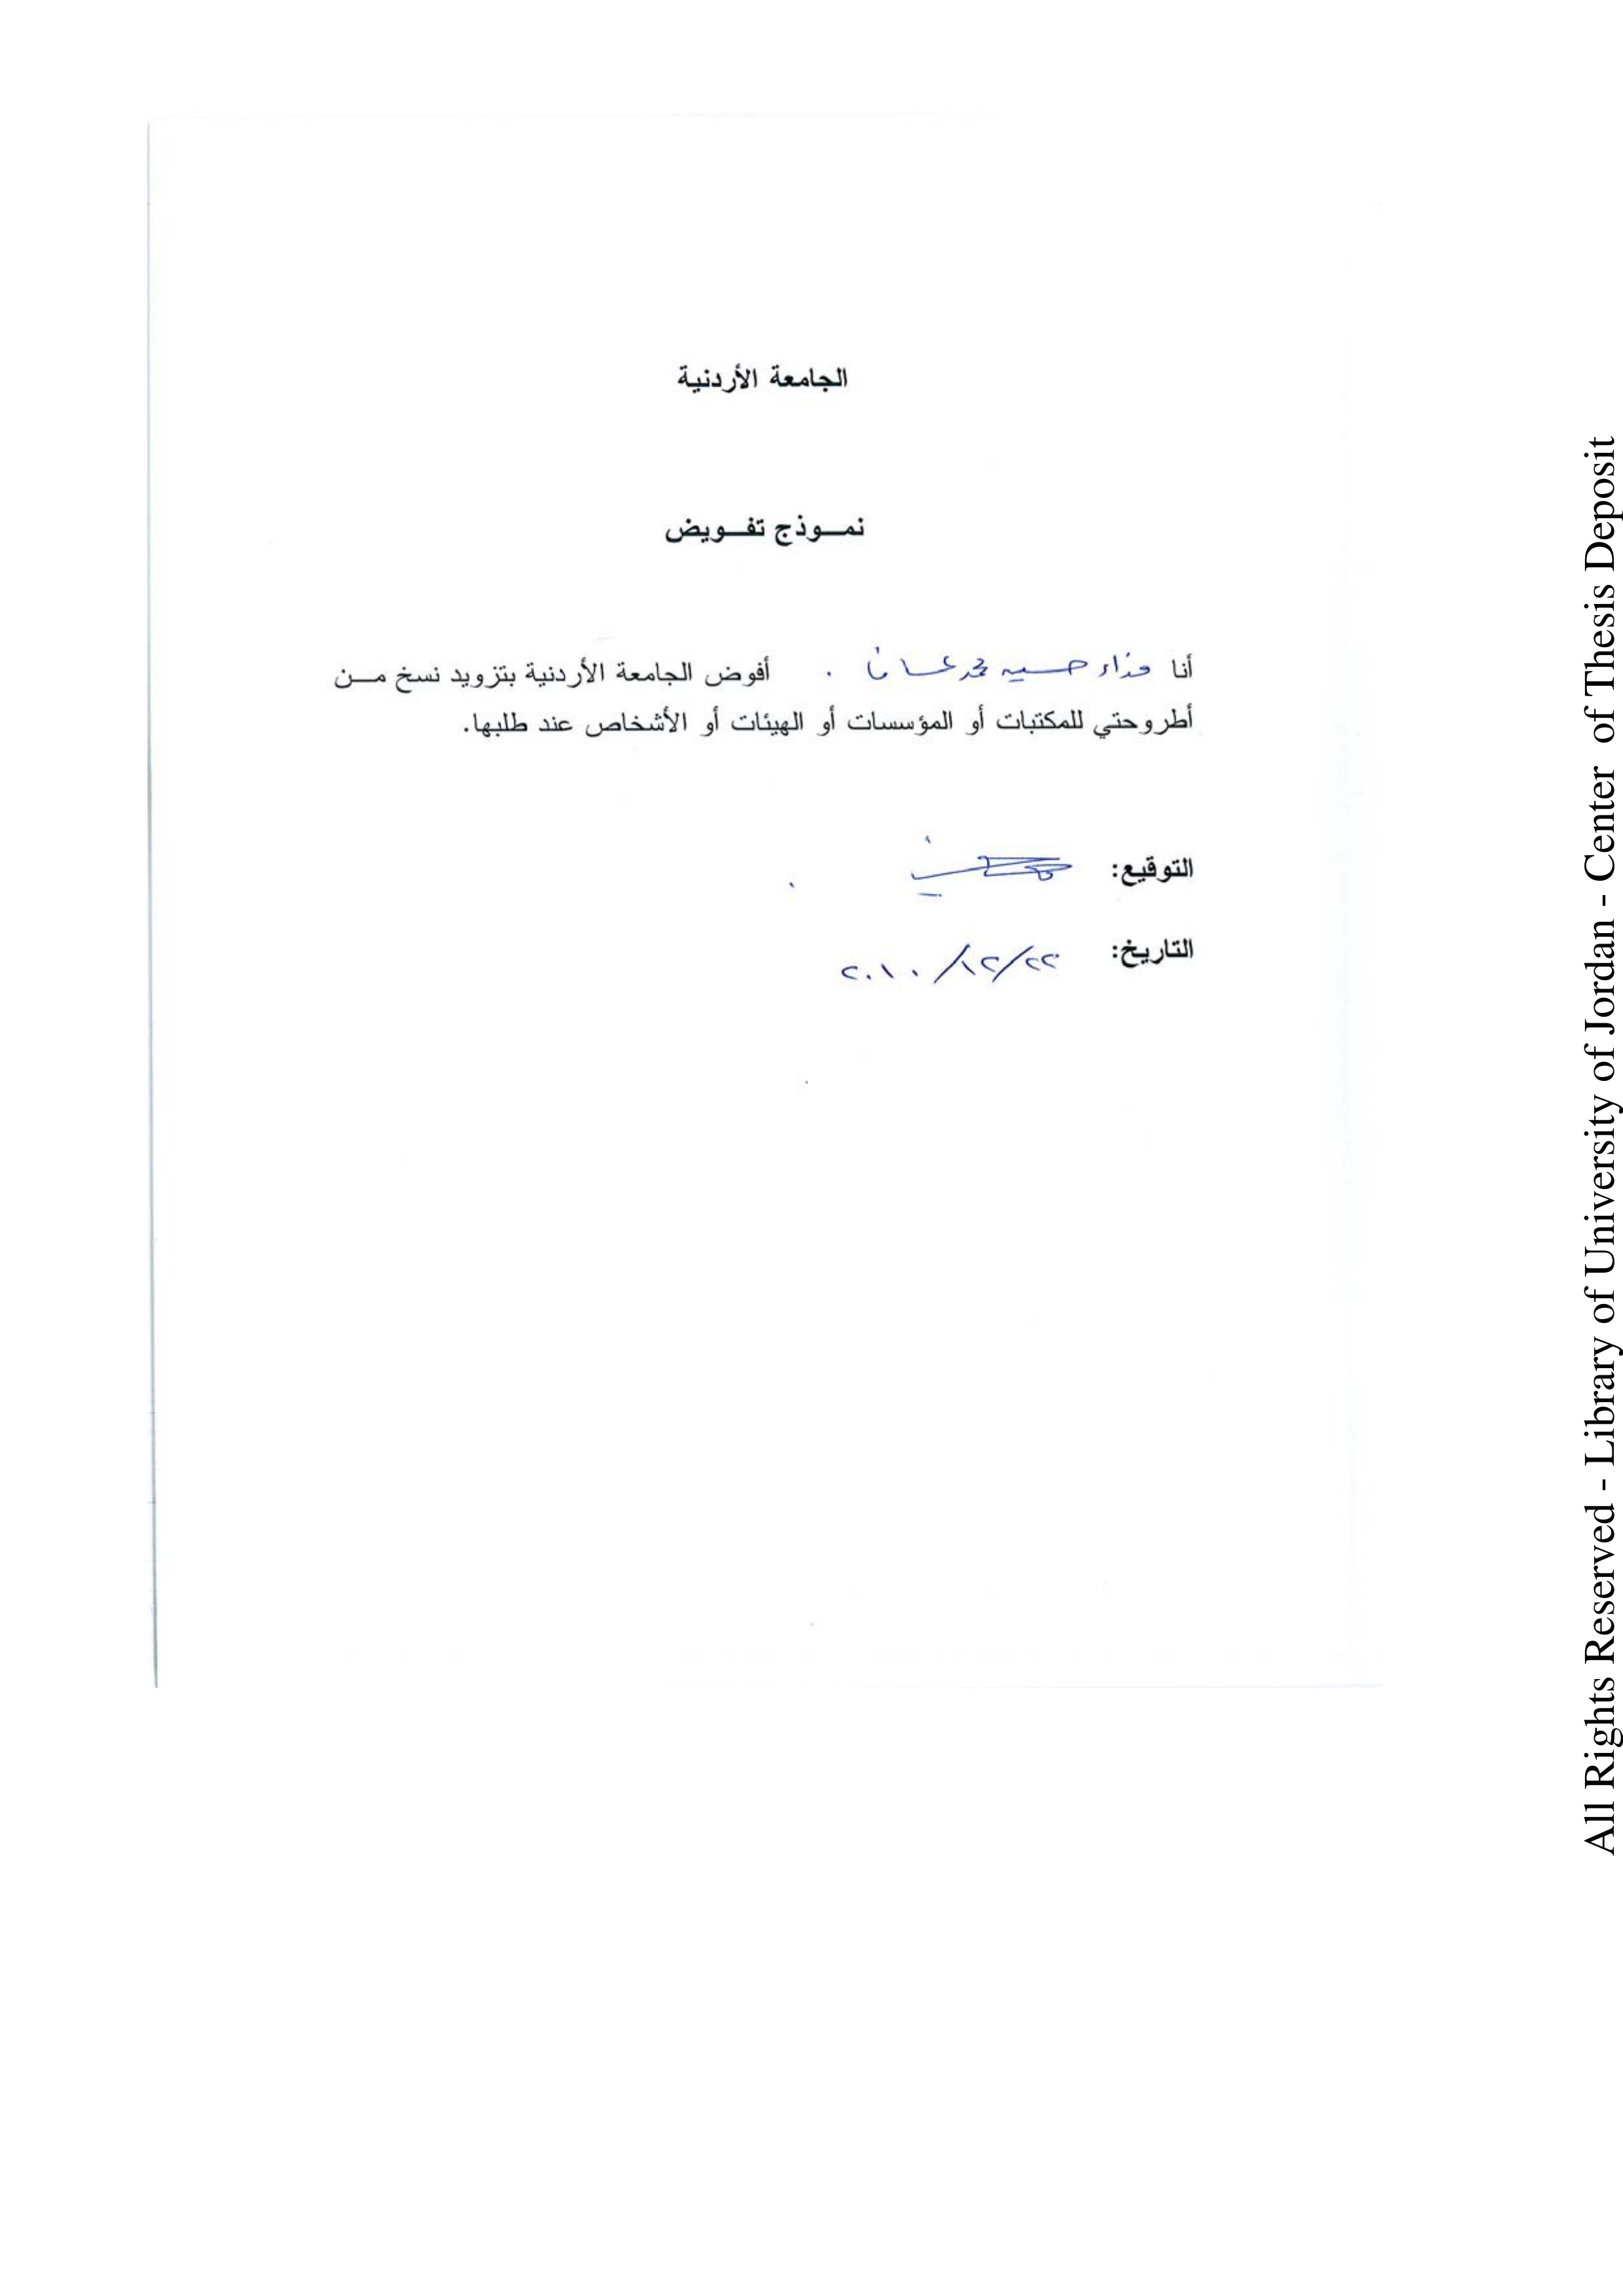 الجامعة الأردنية
نمـوذج تفـويض
أنا حسين محمد . أفوض الجامعة الأردنية بتزويد نسخ مـن
أطروحتي للمكتبات أو المؤسسات أو الهيئات أو الأشخاص عند طلبها.
التوقيع:
التاريخ: ٢٢/١٢/٢٠١٠
All Rights Reserved - Library of University of Jordan - Center of Thesis Deposit